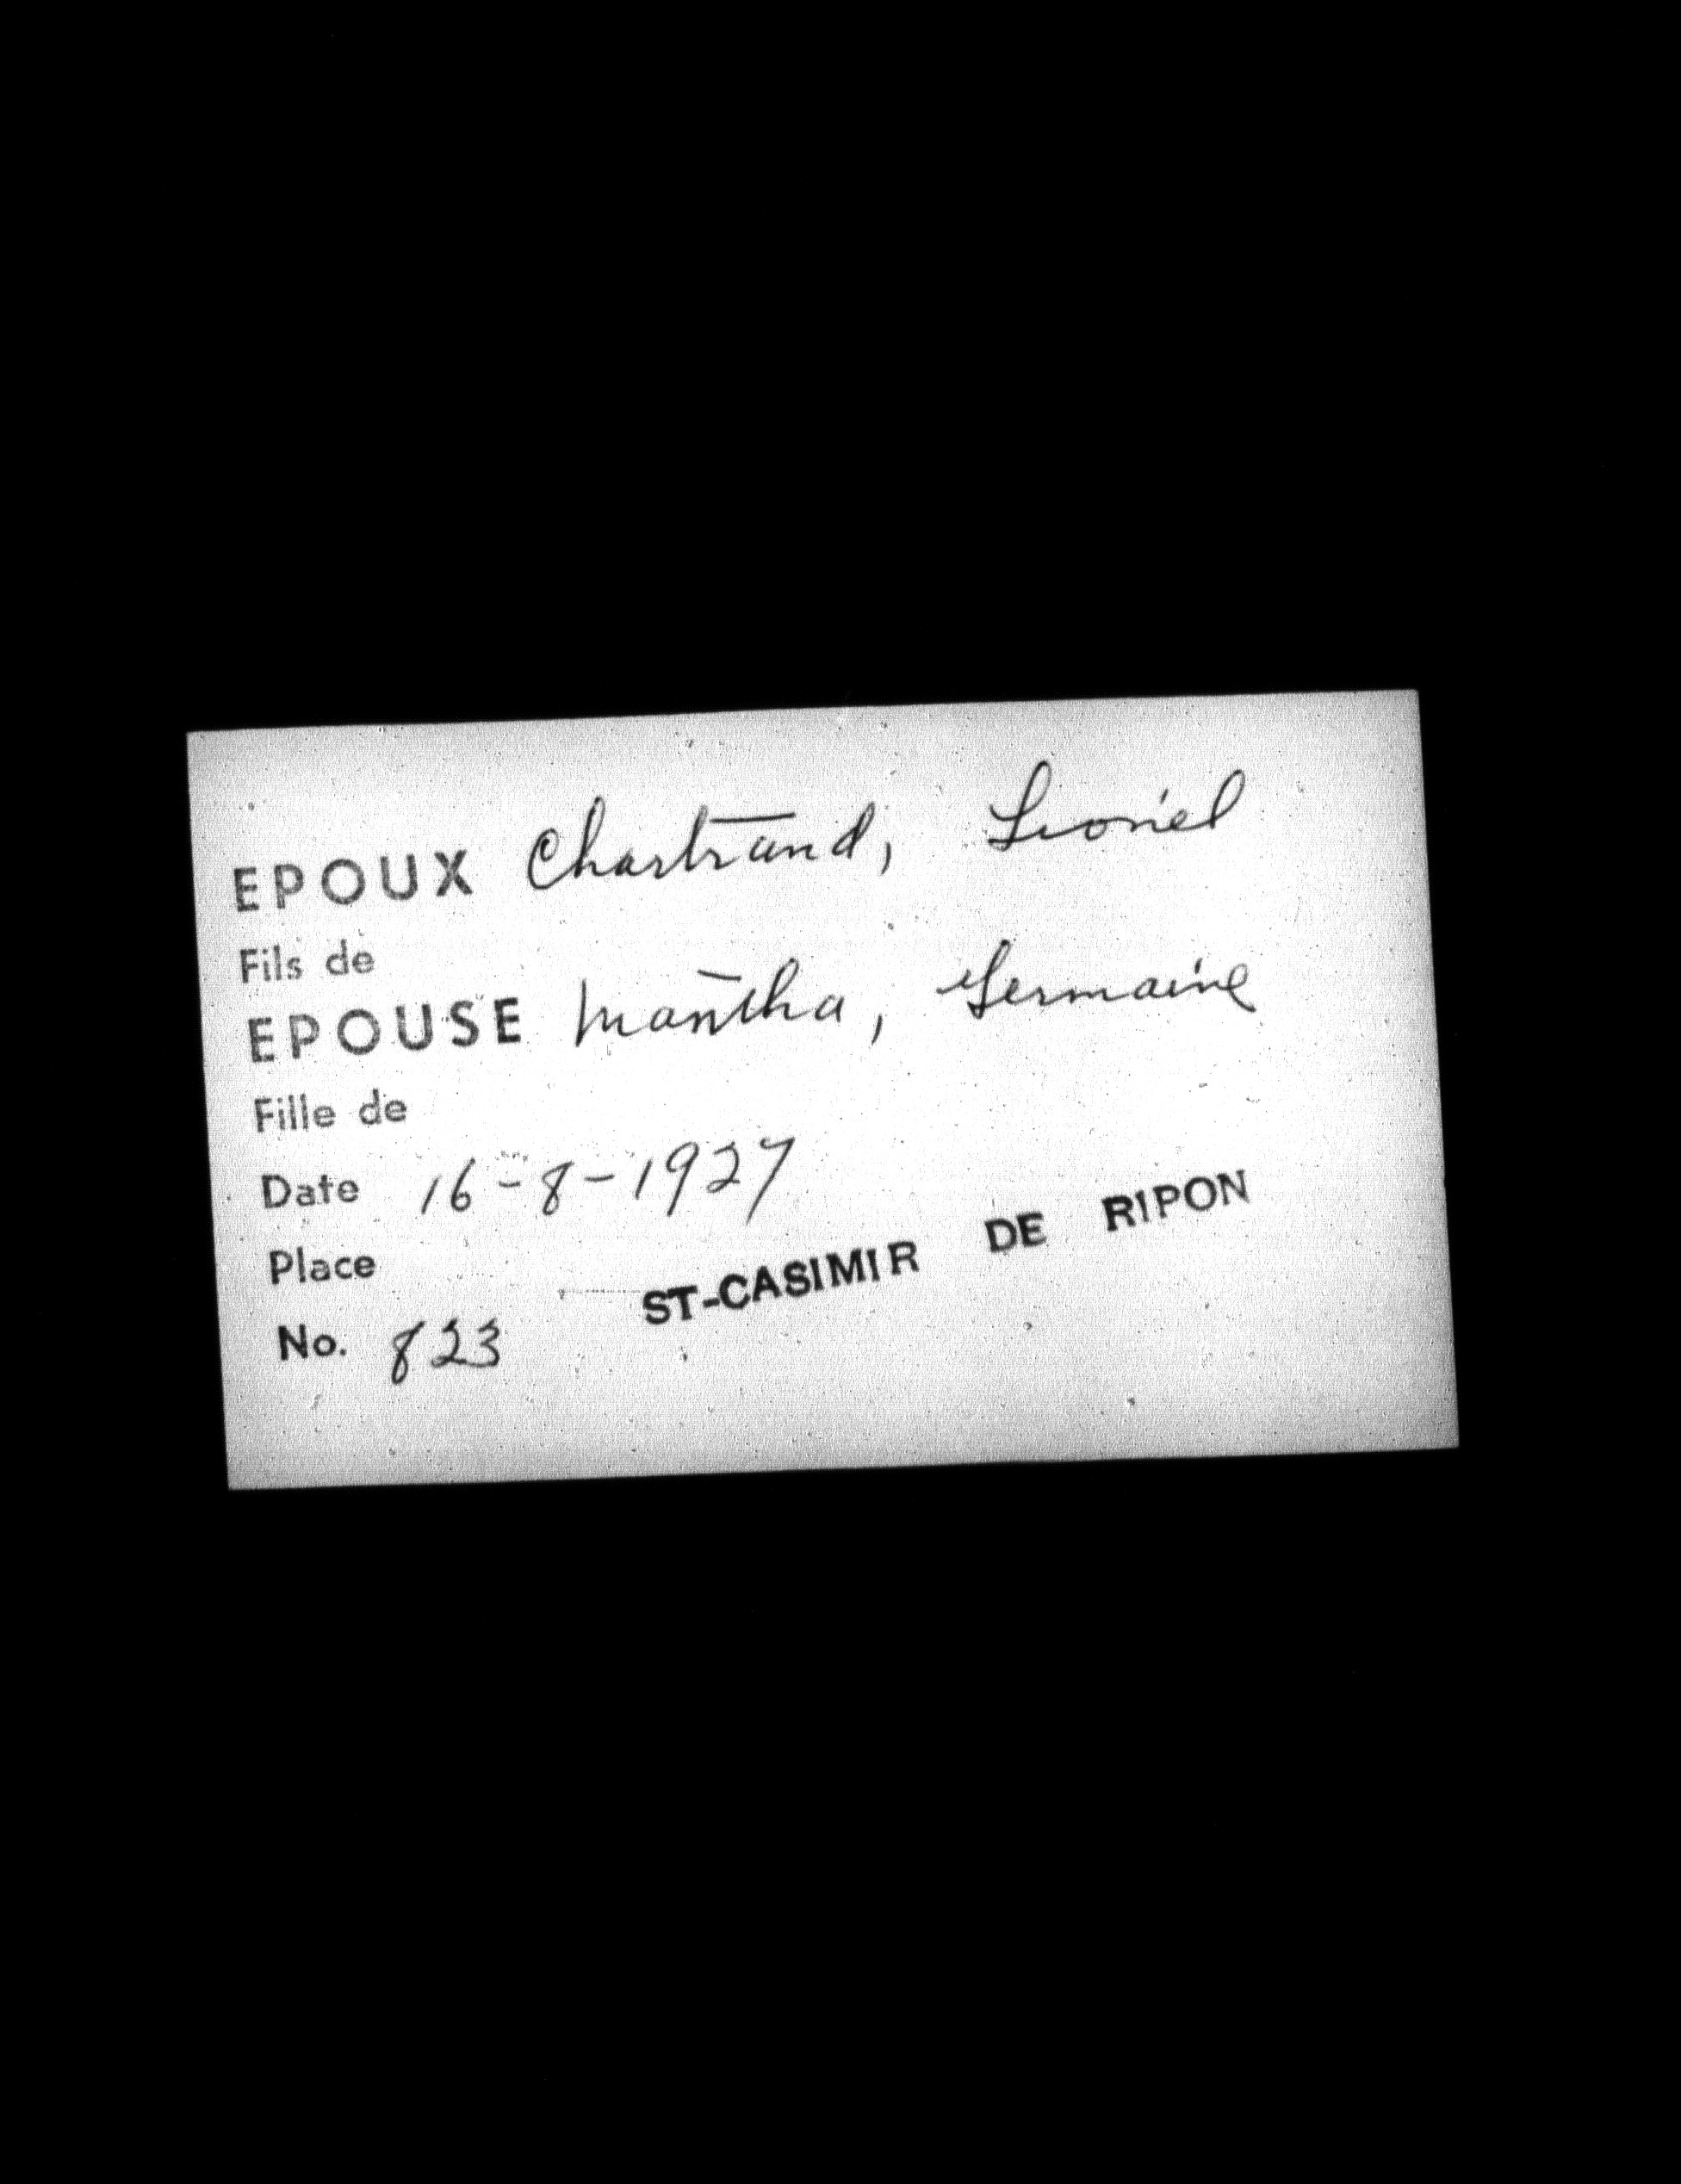 EPOUX Chartrand, Lionel
Fils de
EPOUSE Mantha, Germaine
Fille de
Date 16-8-1927
Place ST-CASIMIR DE RIPON
No. 823